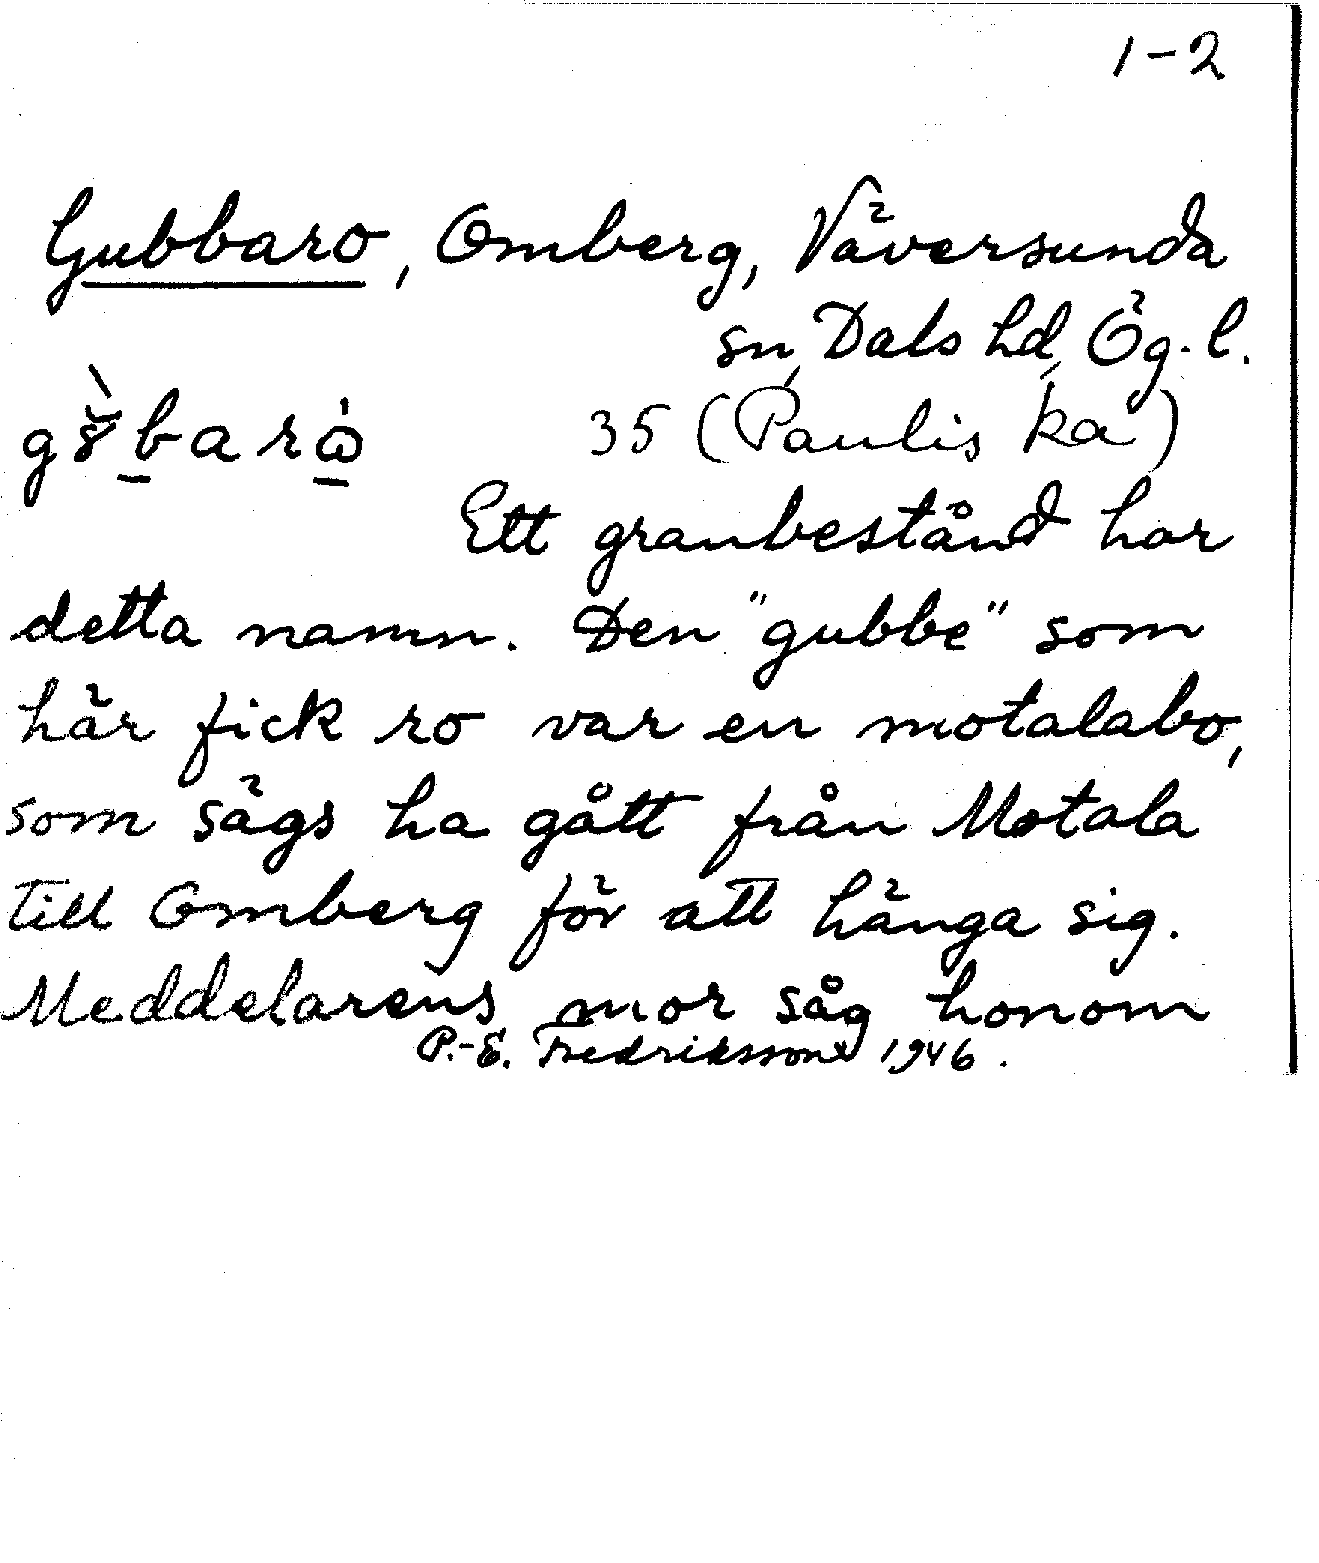 1-2
Gubbaro, Omberg, Väversunda
sn, Dals hd, Ög. l.
35 (Paulis ka)
Ett granbestånd har
detta namn. Den "gubbe" som
här fick ro var en motalabo,
som sägs ha gått från Motala
till Omberg för att hänga sig.
Meddelarens mor såg honom
P.-E. Fredriksson 1946.